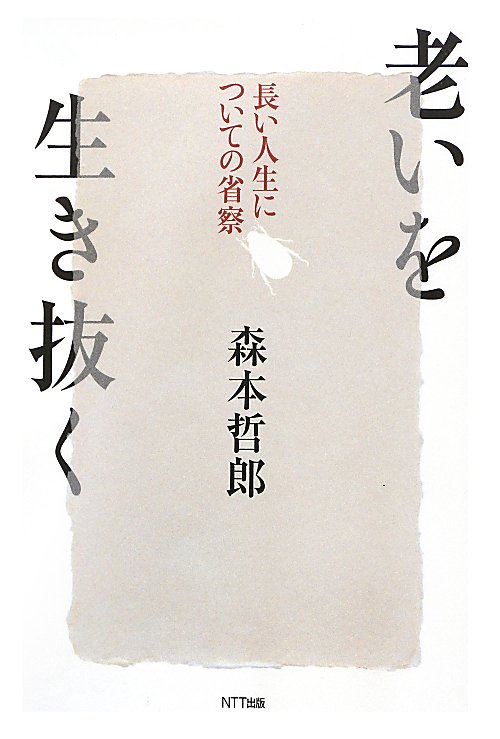 老いを
生き抜く
長い人生に
ついての省察
森本哲郎
NTT出版